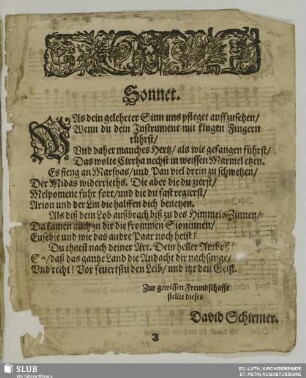 Sonnet.
WAs dein gelehrter Sinn uns pfleget auffzusetzen/
Wenn du dein Instrument mit klugen Fingern
rührst/
Und daher manches Hertz/ als wie gefangen führst/
Das wolte Cirrha nechst in weissen Marmel etzen.
Es fieng an Marsyas/ und Pan viel drein zu schwetzen/
Der Midas widerrieths. Die aber die du zierst/
Melpomene fuhr fort/ und die du fast regierst/
Arion und der Lin die halffen dich benetzen.
Als diß dein Lob außbrach biß zu des Himmels Zinnen/
Da kamen auch zu dir die frommen Sioninnen/
Eusebie und wie das andre Paar noch heist.
Du thatst nach deiner Art. Dein heller
So/ daß das gantze Land die Andacht dir nachsange/
Und recht! Vor feuerstu den Leib/ und itzt den Geist.
Zur gewissen Freundschafft
stellte dieses
David Schirmer.
A
SLUB
Wir führen Wissen.
EV.-LUTH. KIRCHGEMEINDE
ST. PETRI AUGUSTUSBURG